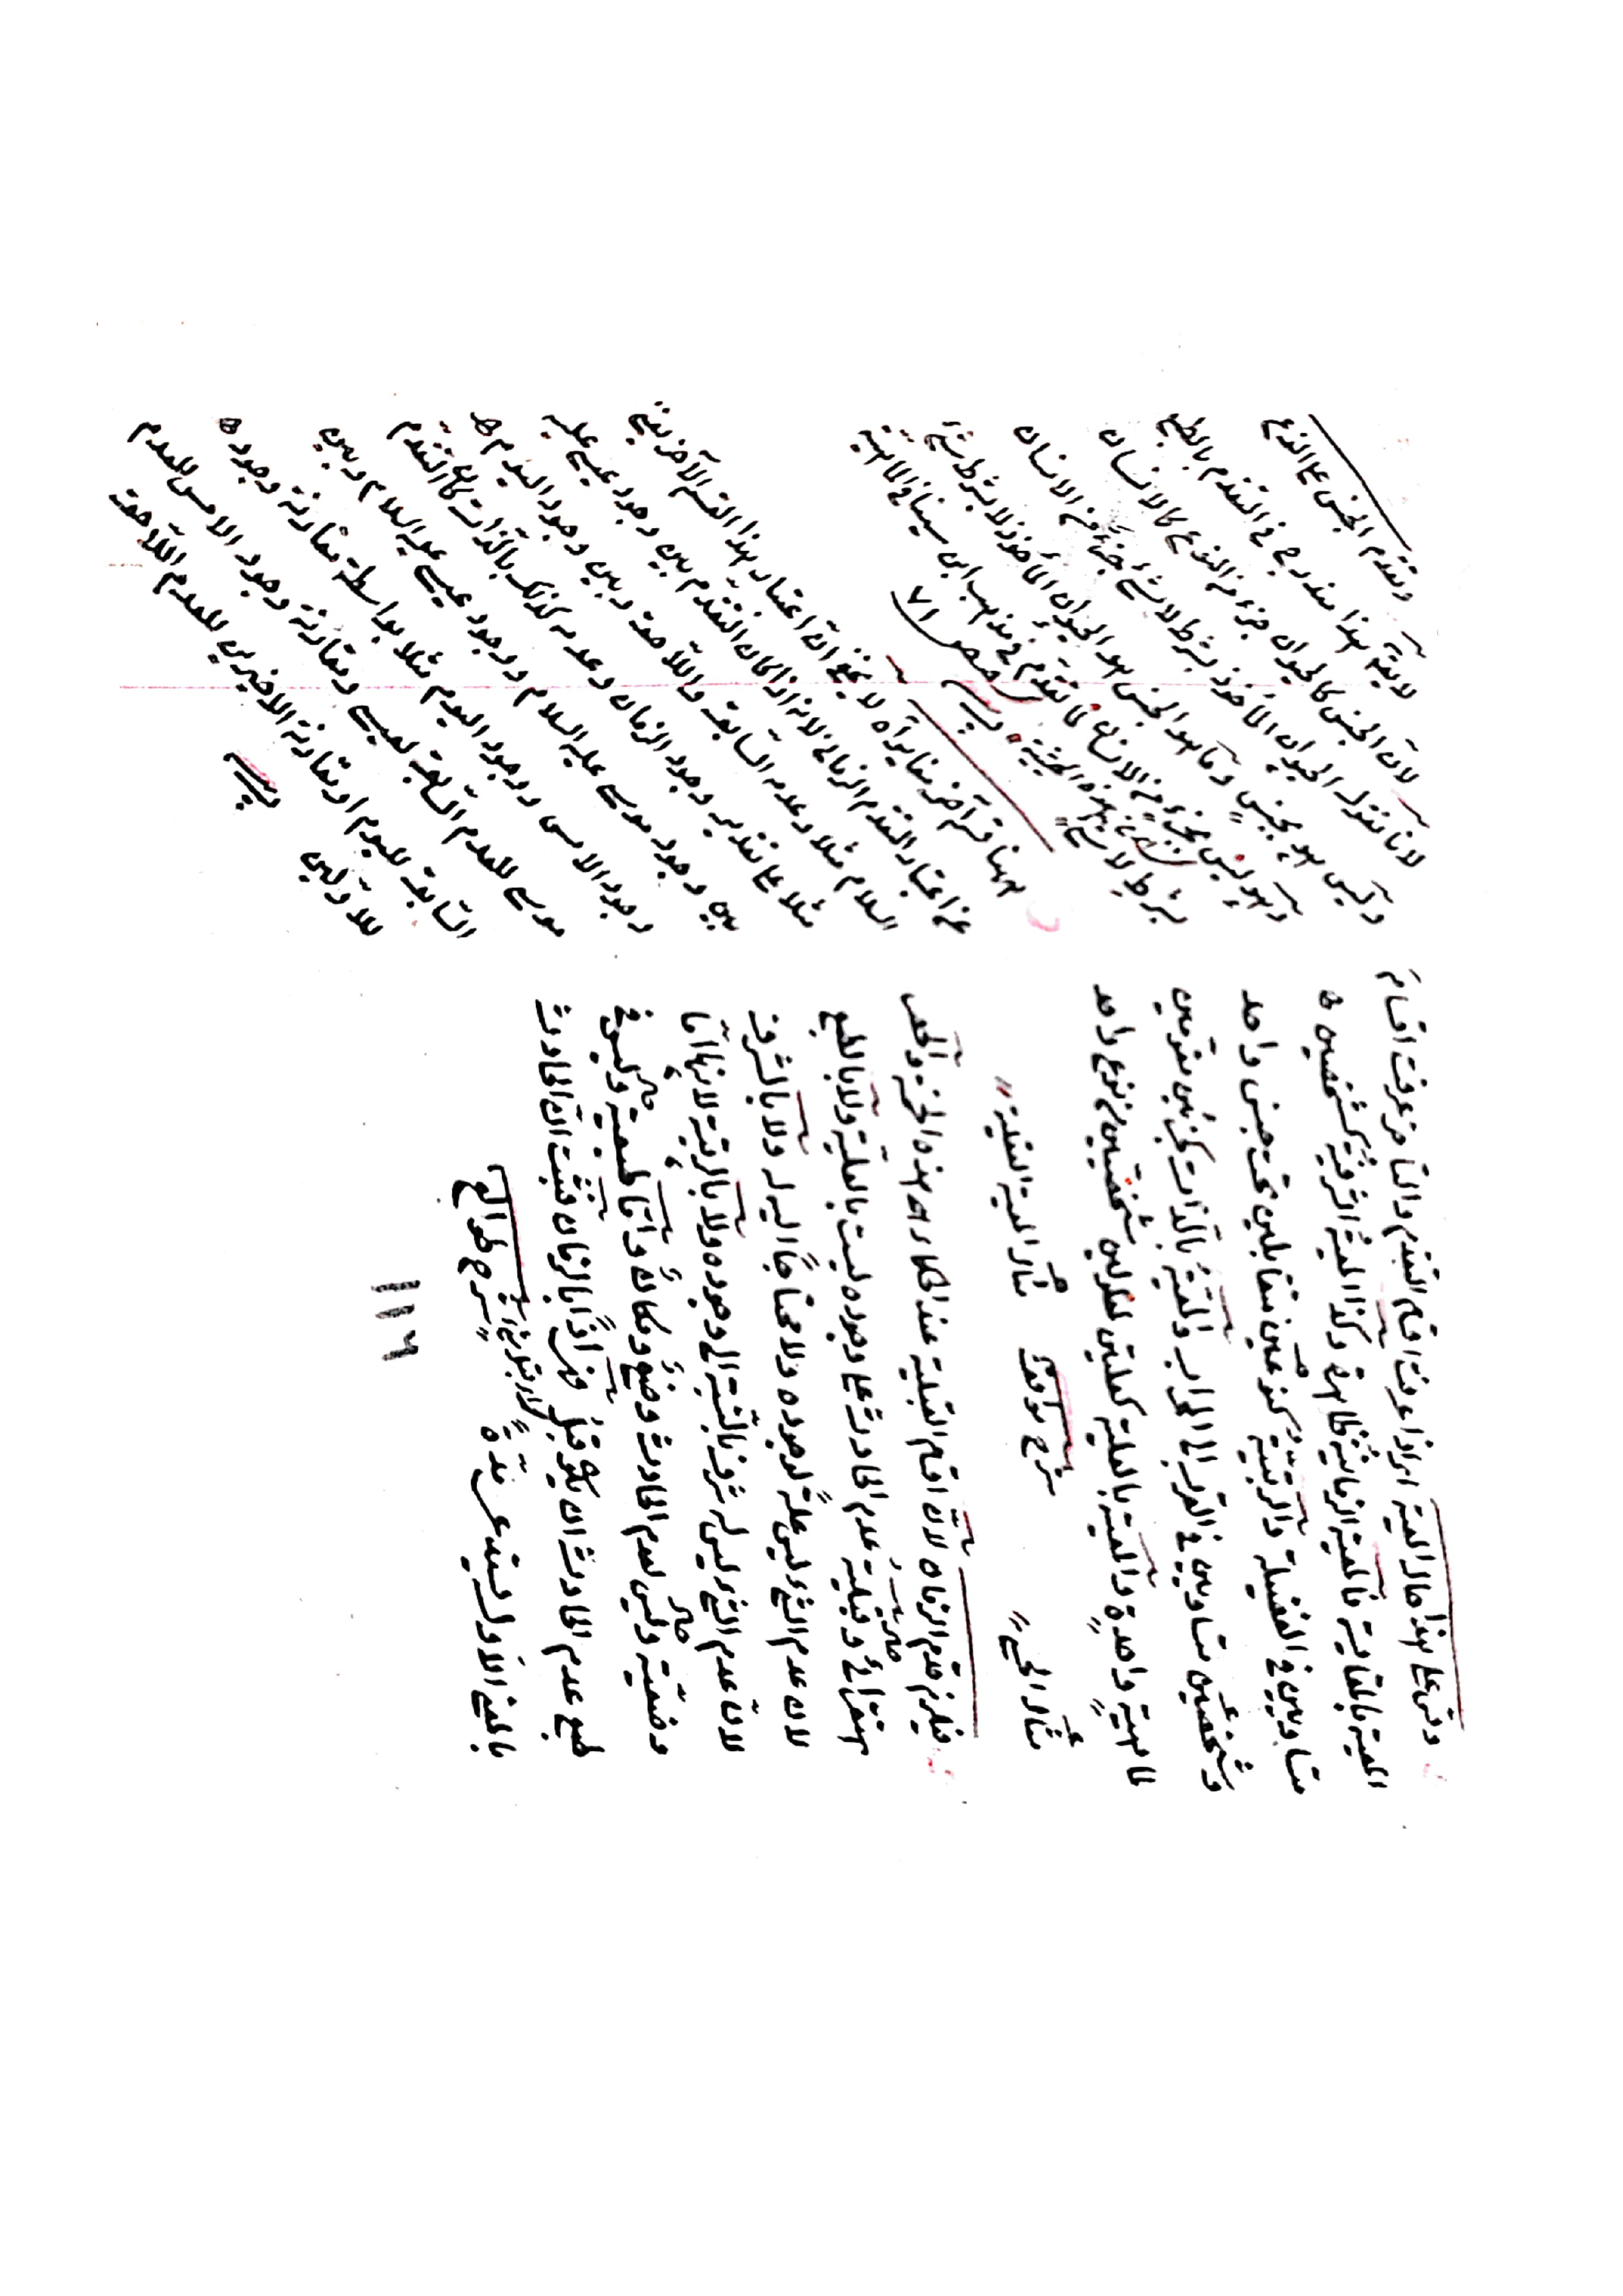 وقس على هذا حال المعية اى اذا عرفت اقسام التقدم والتأخر عرفت اقسام
المعية بالمقايسة فالمعية الزمانية ظاهرة وكذا المعية الشرفية كشخصين
متساويين فى الفضيلة والرتبية كنوعين متقابلين تحت جنس واحد
وشخصين متساويين فى القرب الى المحراب والمعية بالذات كجزئين مقومين
لماهية واحدة والمعية بالعلية كعلتين لمعلولين شخصيين من نوع واحد
شرح مواقف
فيلزم قدم الزمان لان اقسام القبلية عند الحكماء هذه الخمسة
استقرائى وقبلية عدم الحادث على وجوده ليست بالعلية ولا بالطبع
لان عدم الشئ ليس علة لوجوده ولا محتاجا اليه ولا بالشرف
لان عدم الشئ ليس له شرف بالنسبة الى وجوده ولا بالرتبة لانها اما
وضعية وليس لعدم الحادث وضع ومكان واما طبيعية وليس فى
طبع عدم الحادث ان يكون قبل فهى اذا بالزمان فثبت ان الحادث
بالمعنى الاول يستدعى مدة شرح طوالع
وتقدم الجنس على النوع
لا يقال هذا مندرج فى التقدم بالطبع
لان الجنس كالحيوان جزء من النوع كالانسان
لانا نقول الحيوان المأخوذ بشرط لا شئ جزء من الانسان
وليس هو بجنس وما هو الجنس هو الحيوان المأخوذ لا بشرط شئ
وهو ليس بجزء من الانواع كما تقدم فى مذهب ابن سينا فى الماهية
بشرط لا شئ
ههنا قسم آخر مغاير لا يخفى ان اعتبار هذا القسم الآخر يغنى
عن اعتبار التقدم الزمانى لانه اذا كان التقدم بين وجود عيسى عليه
السلام مثلا وعدمه السابق واللاحق وبين وجود اليوم
مثلا على تقدير وجود الزمان وعدمه كذلك بالذات كان التقدم
بين وجود موسى عليه السلام ووجود عيسى عليه السلام وبين
وجود الامس ووجود اليوم مثلا بواسطة مقارنة وجود
موسى للعدم السابق لعيسى ومقارنة وجود الامس للعدم
السابق لليوم او مقارنة الاخيرين للعدم اللاحق
للاولين
١١٦